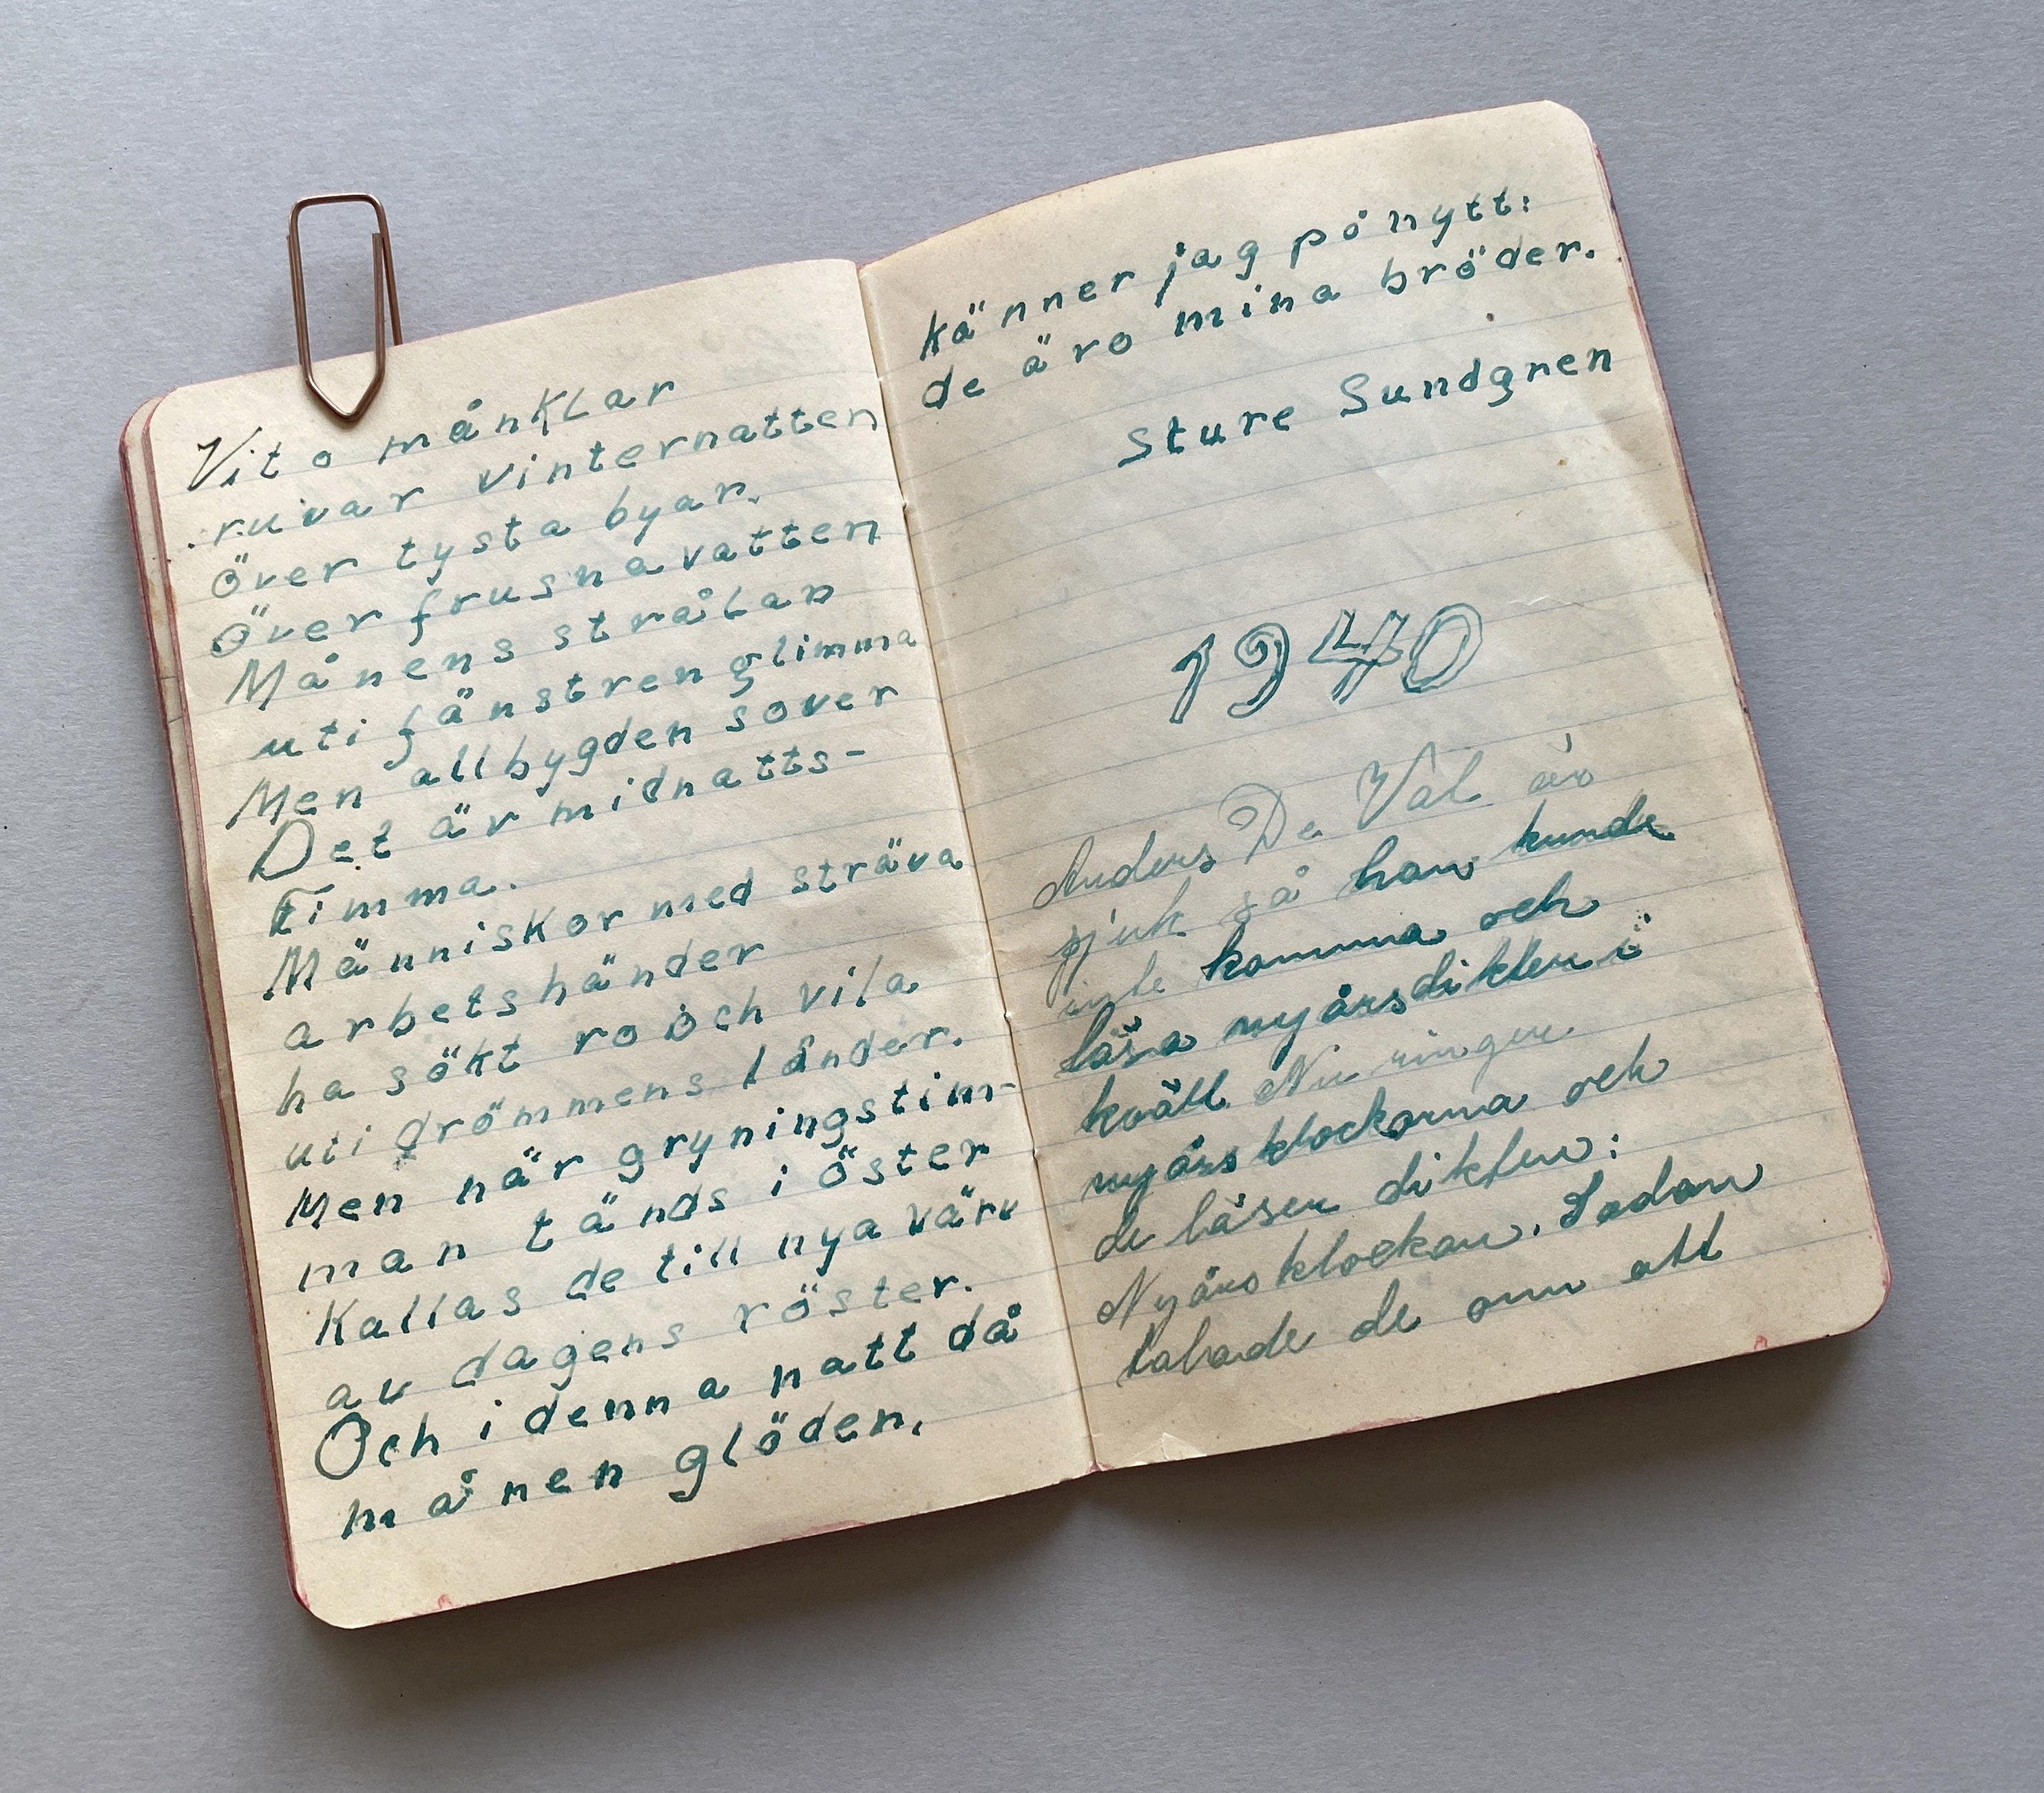 Vit o månklar
ruvar vinternatten
över tysta byar.
över frusna vatten
Månens strålar
uti fänstren glimma
Men all bygden sover
Det är midnatts-
timma.
Människor med sträva
arbetshänder
ha sökt ro och vila
uti drömmens länder.
Men när gryningstim-
man tänds i öster
Kallas de till nya värv
av dagens röster.
Och i denna natt då
månen glöden,
känner jag på nytt:
de äro mina bröder.
Sture Sundgren
1940
Anders De Val är
sjuk så han kunde
inte komma och
läsa nyårsdikten i
kväll. Nu ringer
nyårsklockorna och
de läser dikten:
Nyårsklockan. Sedan
talade de om att